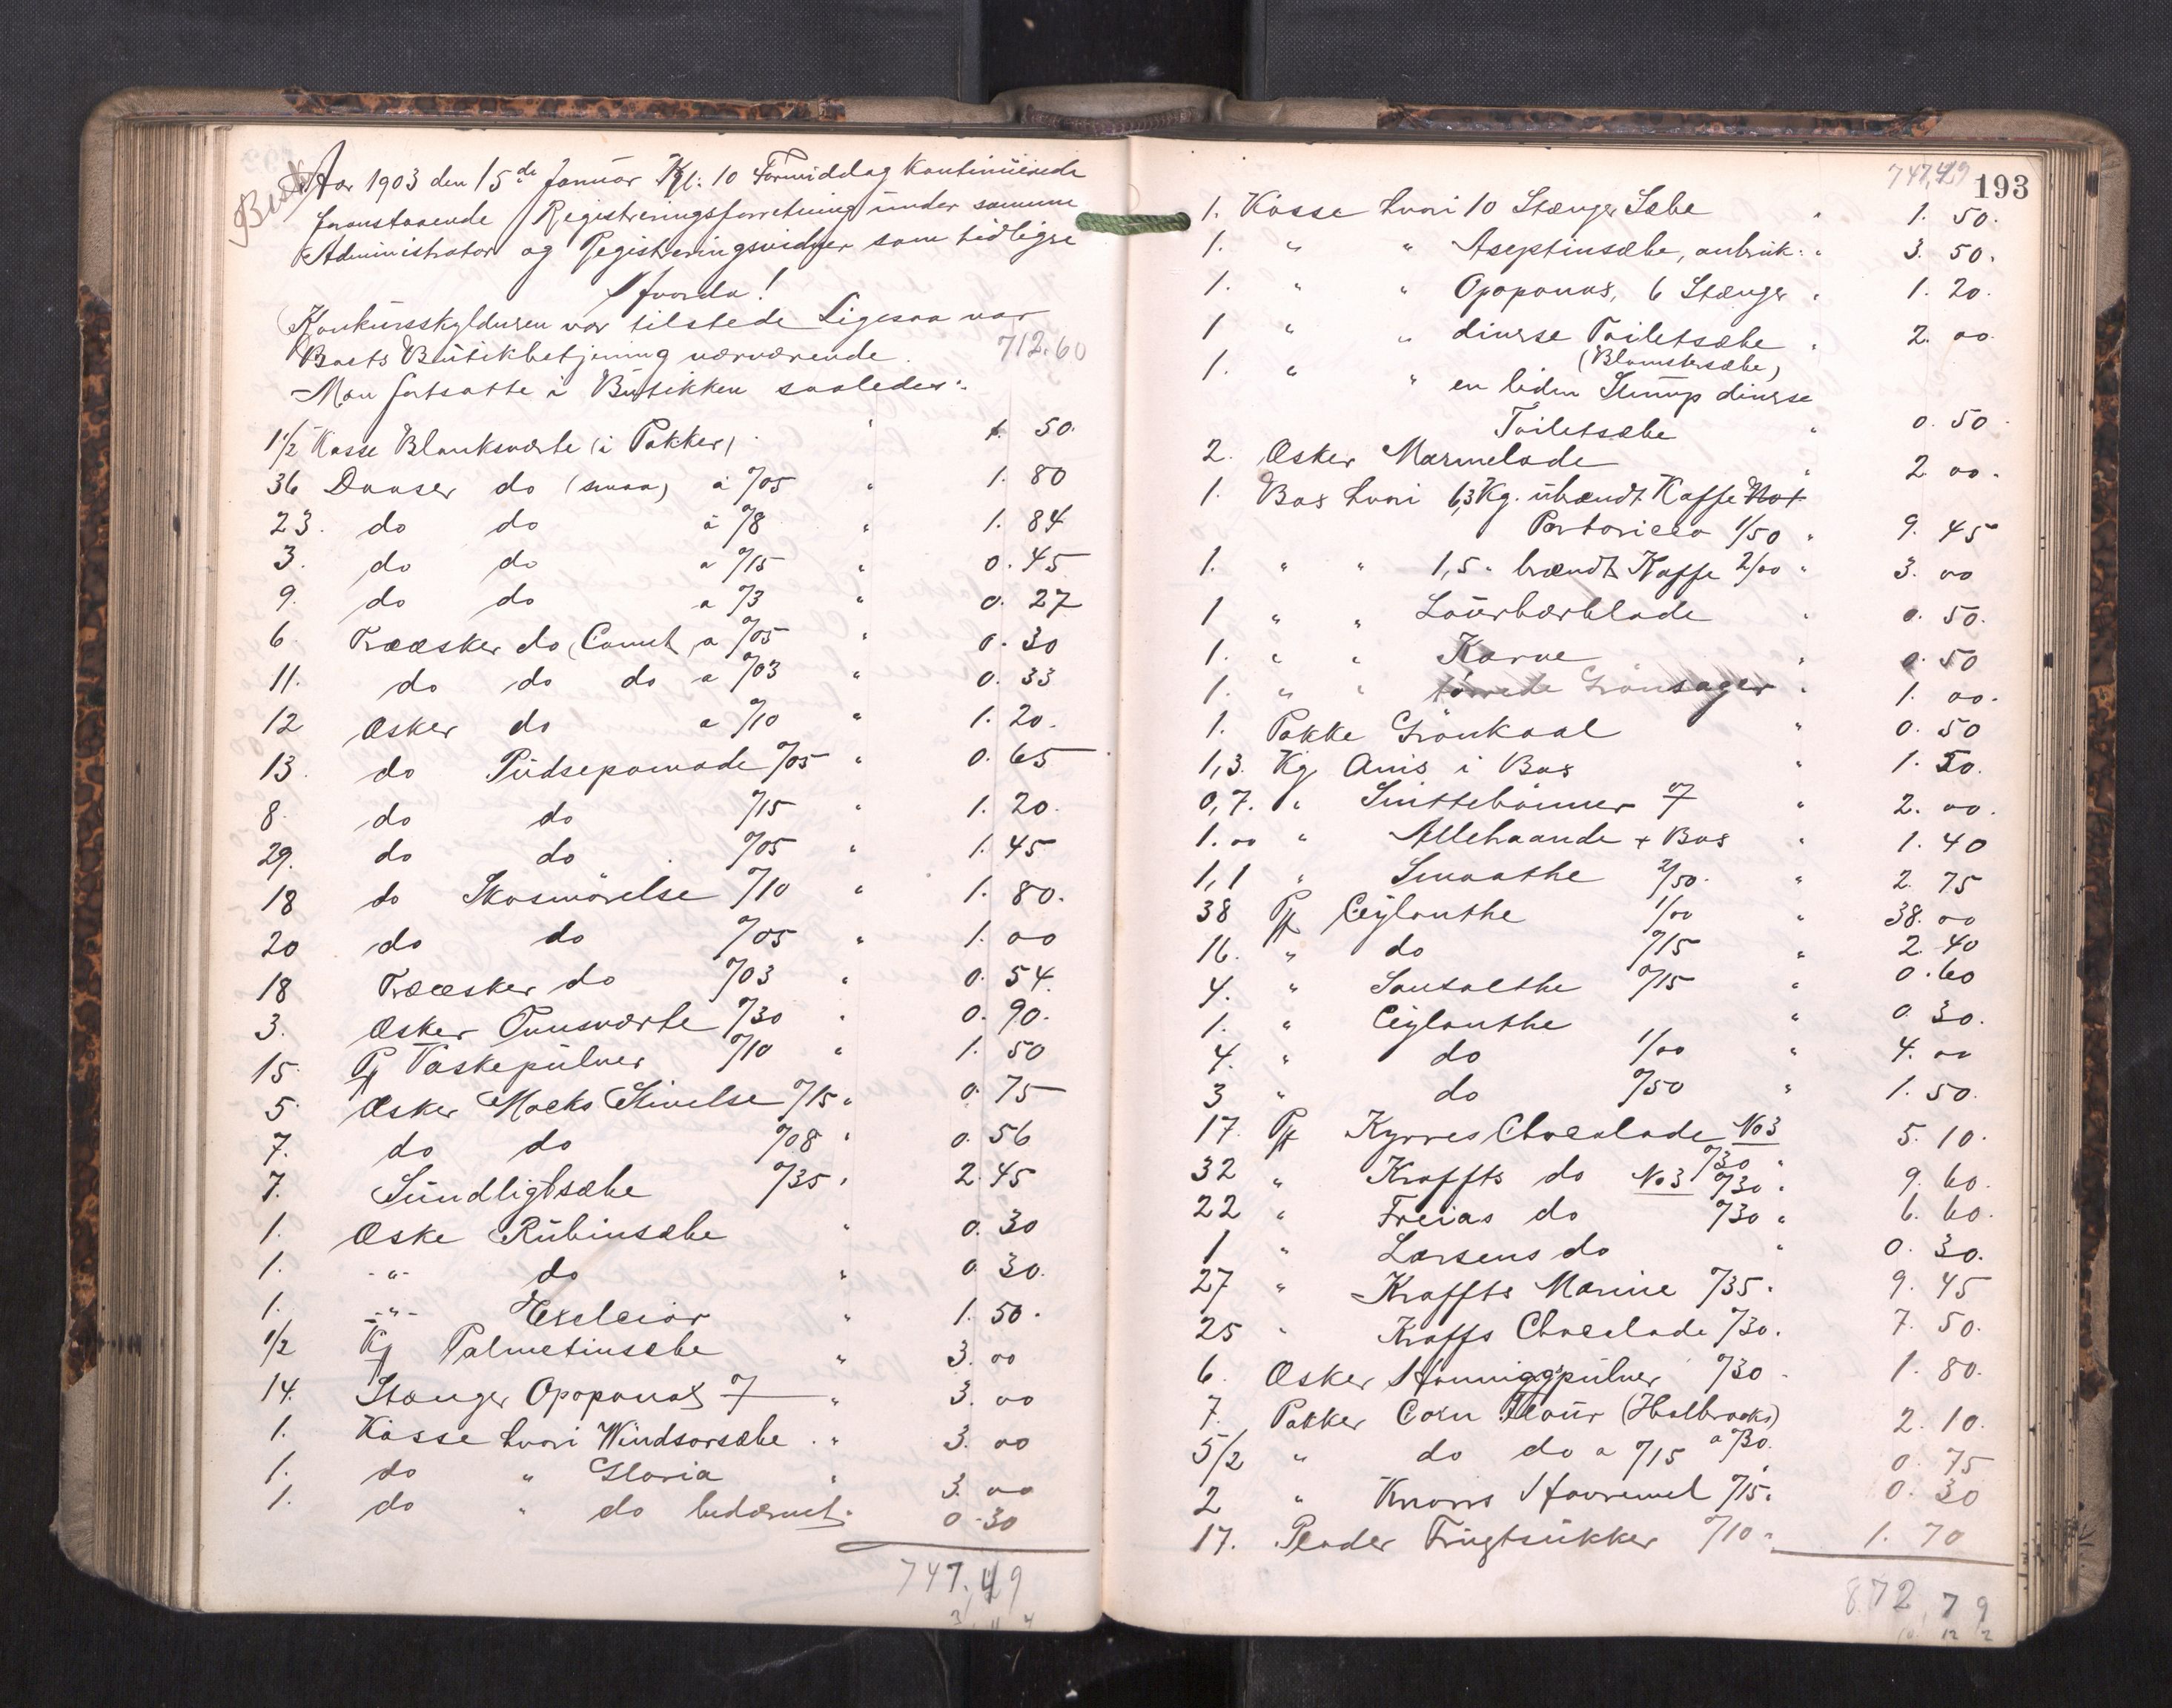 Aar 1903 den 15de Januar Kl: 10 Formiddag kontinuerede
foranstaaende Registreringsforretning under samme
Administrator og Registreringsvidner som tidligere
Hvorda!
Konkursskyldneren var tilstede Ligesaa var
Boets Butikbetjening nærværende. 712.60
Man fortsatte i Butikken saaledes:
1 1/2 Kasse Blanksværte (i Pakker) " 1. 50.
36 Daaser do (smaa) à 0/05 " 1. 80
23. do do à 0/8 " 1. 84
3. do do a 0/15 " 0. 45
9. do do a 0/3 " 0. 27
6 Trææsker do, a 0/05 " 0. 30
11. do do do a 0/03 " 0. 33
12 Æsker do a 0/10 " 1. 20.
13. do Pudsepomade 0/05 " 0. 65
8. do do 0/15 " 1. 20.
29. do do 0/05 " 1. 45
18 do Skosmörelse 0/10 " 1. 80.
20 do do 0/05 " 1. 00
18 Trææsker do 0/03 " 0. 54.
3. Æsker Ovnsværte 0/30 " 0. 90.
15. Pk Vaskepulver 0/10 " 1. 50
5. Æsker Macks Stivelse 0/15 " 0. 75
7. do do 0/08 " 0. 56
7. Sundligtsæbe 0/35 " 2. 45
1. Æske Rubinsæbe " 0. 30
1. -"- do " 0. 30.
1. -"- Exelciör " 1. 50.
1/2 Kg Palmetinsæbe " 3. 00
14. Stænger Opoponax 0/ " 3. 00
1. Kasse hvori Windsorsæbe " 3. 00
1. do " Gloria " 3. 00
1. do " do bedærvet " 0. 30
747,49
747,49
193
1. Kasse hvori 10 Stænger Sæbe " 1. 50.
1. " " Aseptinsæbe, anbruk: " 3. 50.
1. " " Opoponax, 6 Stænger " 1. 20.
1 " " diverse Toiletsæbe " 2. 00.
(Blomstersæbe)
1. " " en liden Slump diverse
Toiletsæbe " 0. 50.
2. Æsker Marmelade " 2. 00.
1. Bøs hvori 6,3 Kg. ubrændt Kaffe
Portoricco 1/50 " 9. 45
1. " " 1,5 " brændt Kaffe 2/00 " 3. 00
1 " " Laurbærblade " 0. 50.
1. " " Karve " 0. 50
1. " " tørrede Grönsager " 1. 00.
1. Pakke Grönkaal " 0. 50
1,3. Kg Anis i Bøs " 1. 50.
0,7. " Snittebönner 0/ " 2. 00.
1.00 " Allehaande + Bøs " 1. 40
1,1 " Smaathe 2/50. " 2. 75
38 Pk Ceylonthe 1/00 " 38. 00
16. " do 0/15 " 2. 40
4. " 0/15 " 0. 60
1. " Ceylonthe " 0. 30.
4. " do 1/00 " 4. 00
3 " do 0/50 " 1. 50.
17. Pk Kyrres Chocolade No 3 0/30 " 5. 10.
32 " Kraffts do No 3 0/30 " 9. 60.
22 " Freias do 0/30 " 6. 60.
1 " Larsens do " 0. 30.
27 " Kraffts Marine 0/35 " 9. 45
25 " Kraffs Chocolade 0/30. 7. 50.
6. Æsker Honniggpulver 0/30 " 1. 80.
7. Pakker Corn Flour (Holbrooks) a 0/30. 2. 10.
5/2 " do do a 0/15 " 0. 75
2 " Knorrs Havremel 0/15 " 0. 30
17. Plader Frugtsukker 0/10 " 1. 70
872,79